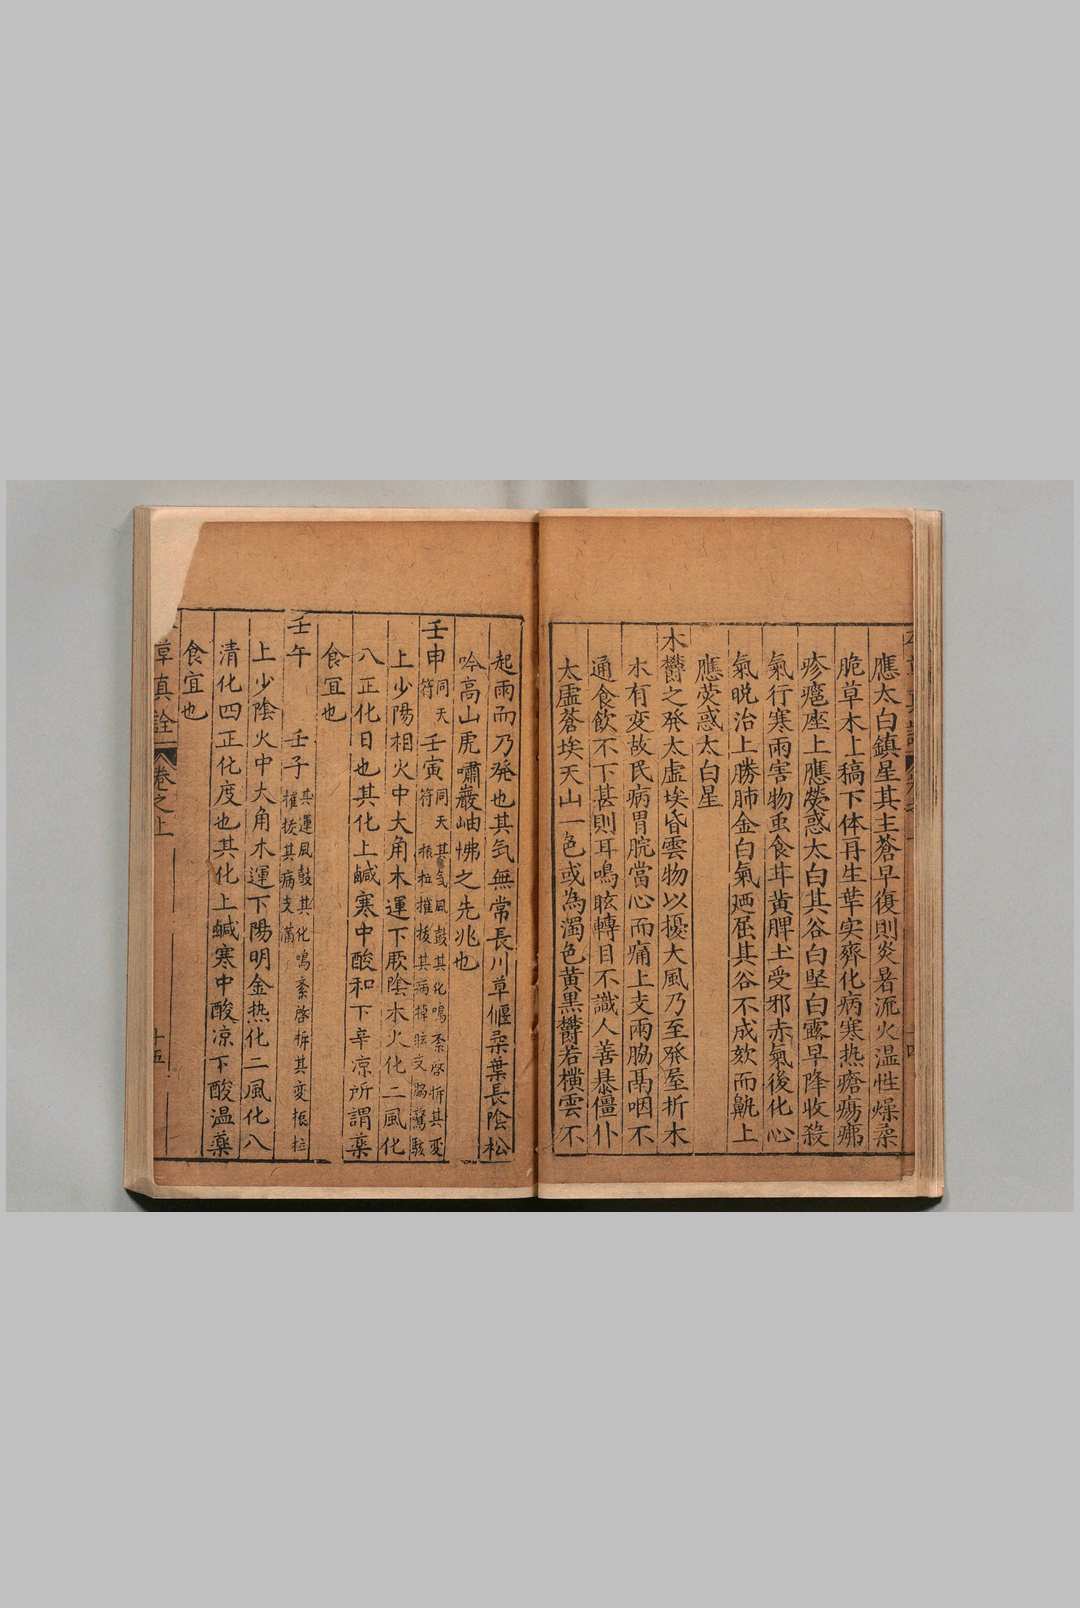 應太白鎮星其主蒼早復則炎暑流火温性燥柔
脆草木上稿下体再生莘实齊化病寒热瘡疡痈
疹癰座上應熒惑太白其谷白坚白露早降收殺
氣行寒雨害物虫食甘黄脾土受邪赤氣後化心
氣晩治上勝肺金白氣廼屈其谷不成欬而鼽上
應荧惑太白星
木欝之発太虚埃昏雲物以擾大風乃至発屋折木
木有変故民病胃脘當心而痛上支兩脇鬲咽不
通食飲不下甚則耳鳴眩轉目不識人善暴僵仆
太虚蒼埃天山一色或為濁色黄黒欝若横雲不
起雨而乃発也其気無常長川草偃桑葉長陰松
吟高山虎嘯巖岫怫之先兆也
壬申同天符 壬寅同天符 其氣風鼓其化鳴紊啓拆其変振拉摧拔其病掉眩支脇驚駭
上少陽相火中大角木運下厥陰木火化二風化
八正化日也其化上鹹寒中酸和下辛凉所謂薬
食宜也
壬午 壬子 其運風鼓其化鳴紊啓拆其変振拉摧拔其病支滿
上少陰火中大角木運下陽明金热化二風化八
清化四正化度也其化上鹹寒中酸凉下酸温薬
食宜也
草真詮 卷之上 十五